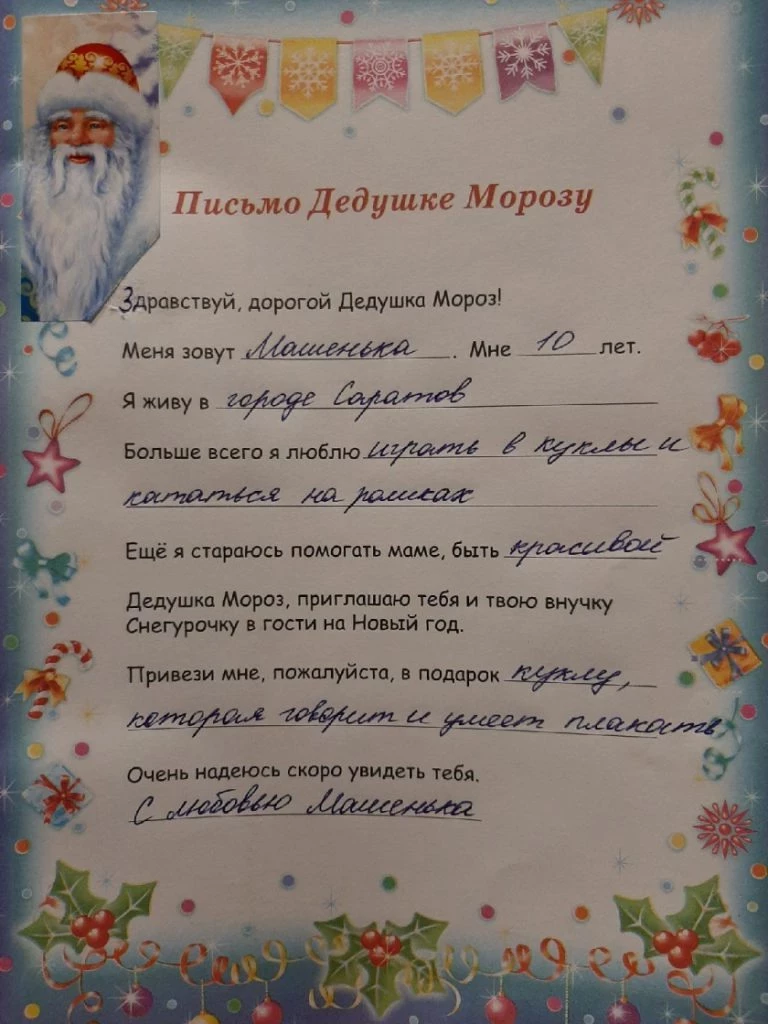 Письмо Дедушке Морозу
Здравствуй, дорогой Дедушка Мороз!
Меня зовут Машенька. Мне 10 лет.
Я живу в городе Саратов
Больше всего я люблю играть в куклы и
кататься на роликах
Ещё я стараюсь помогать маме, быть красивой
Дедушка Мороз, приглашаю тебя и твою внучку
Снегурочку в гости на Новый год.
Привези мне, пожалуйста, в подарок куклу,
которая говорит и умеет плакать
Очень надеюсь скоро увидеть тебя.
С любовью Машенька